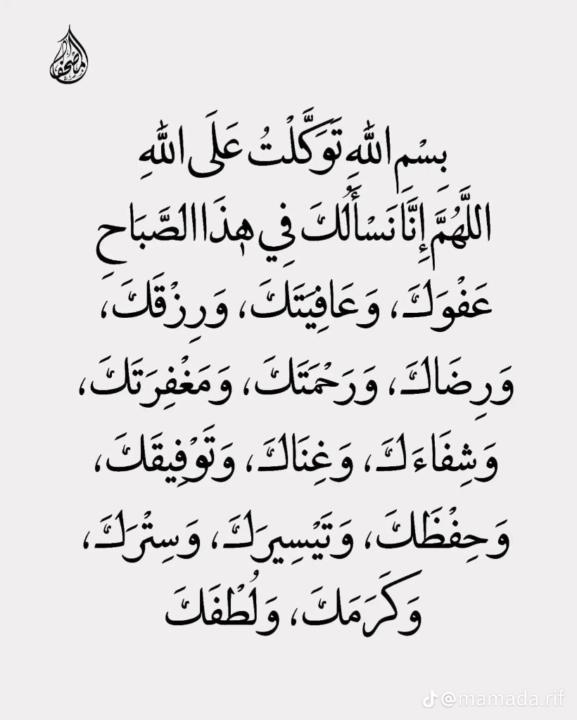 بِسْمِ اللّٰهِ تَوَكَّلْتُ عَلَى اللّٰهِ
اللَّهُمَّ إِنَّا نَسْأَلُكَ فِي هٰذَا الصَّبَاحِ
عَفْوَكَ، وَعَافِيَتَكَ، وَرِزْقَكَ،
وَرِضَاكَ، وَرَحْمَتَكَ، وَمَغْفِرَتَكَ،
وَشِفَاءَكَ، وَغِنَاكَ، وَتَوْفِيقَكَ،
وَحِفْظَكَ، وَتَيْسِيرَكَ، وَسِتْرَكَ،
وَكَرَمَكَ، وَلُطْفَكَ
@mamada.rif